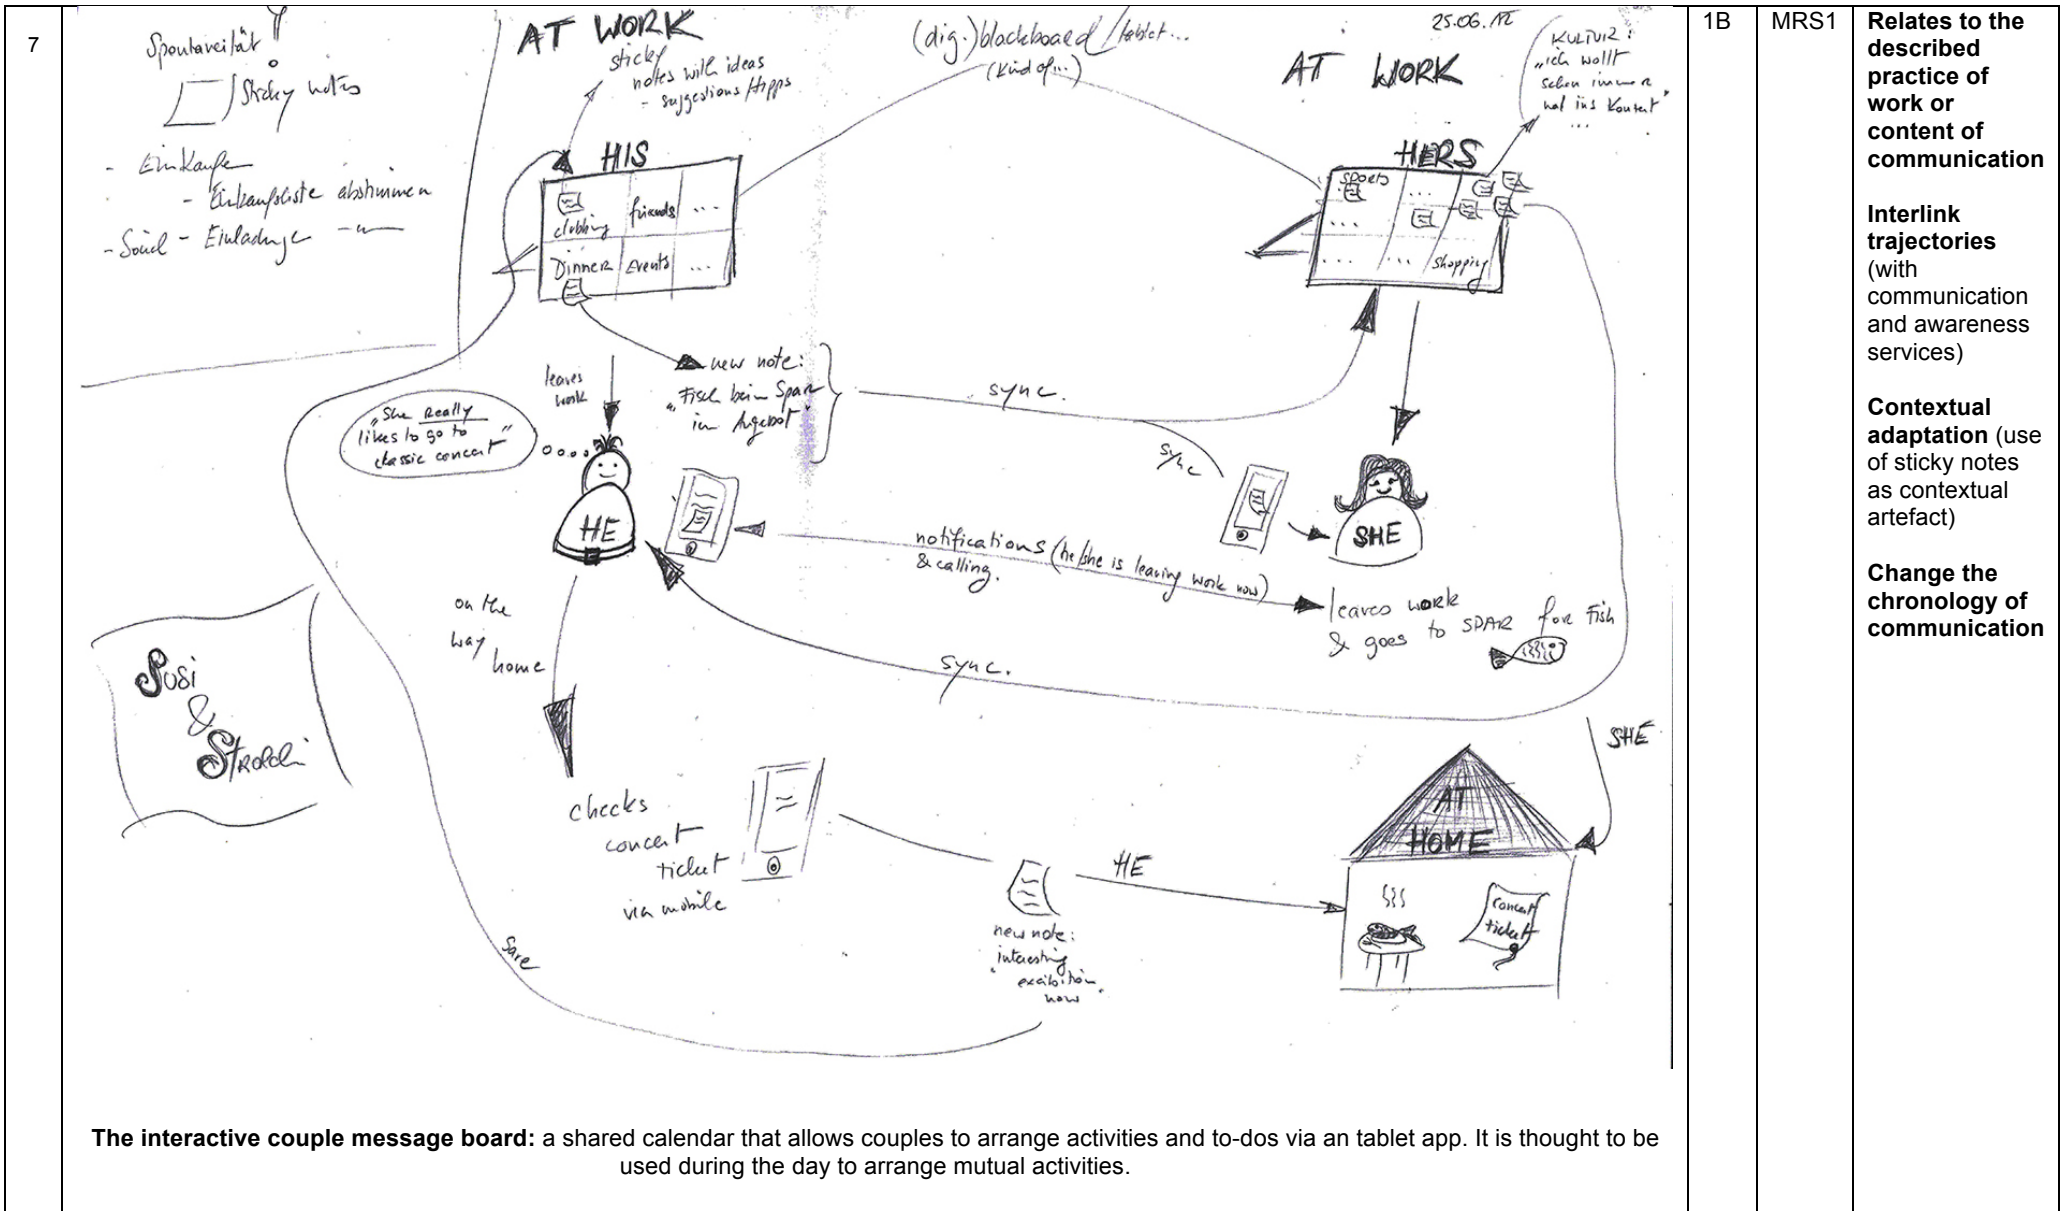 7
Spontaneität!
Sticky notes
- Einkaufen
- Einkaufsliste abstimmen
- Social - Einladungen - " -
AT WORK
sticky
notes with ideas
- suggestions/tipps
(dig.) blackboard / tablet...
(kind of...)
25.06.12
AT WORK
KULTUR:
"ich wollt
schon immer
mal ins Konzert"
...
HIS
clubbing
friends
...
Dinner
Events
...
HERS
sports
...
...
...
...
shopping
leaves
work
new note:
"Fisch beim Spar
im Angebot"
sync.
sync
"She really
likes to go to
classic concert"
HE
SHE
notifications (he/she is leaving work now)
& calling.
leaves work
& goes to SPAR for Fish
on the
way
home
sync.
Susi
&
SHE
checks
concert
ticket
via mobile
AT
HOME
HE
concert
ticket
new note:
"interesting
excibition
now"
Save
The interactive couple message board: a shared calendar that allows couples to arrange activities and to-dos via an tablet app. It is thought to be
used during the day to arrange mutual activities.
1B
MRS1
Relates to the
described
practice of
work or
content of
communication
Interlink
trajectories
(with
communication
and awareness
services)
Contextual
adaptation (use
of sticky notes
as contextual
artefact)
Change the
chronology of
communication